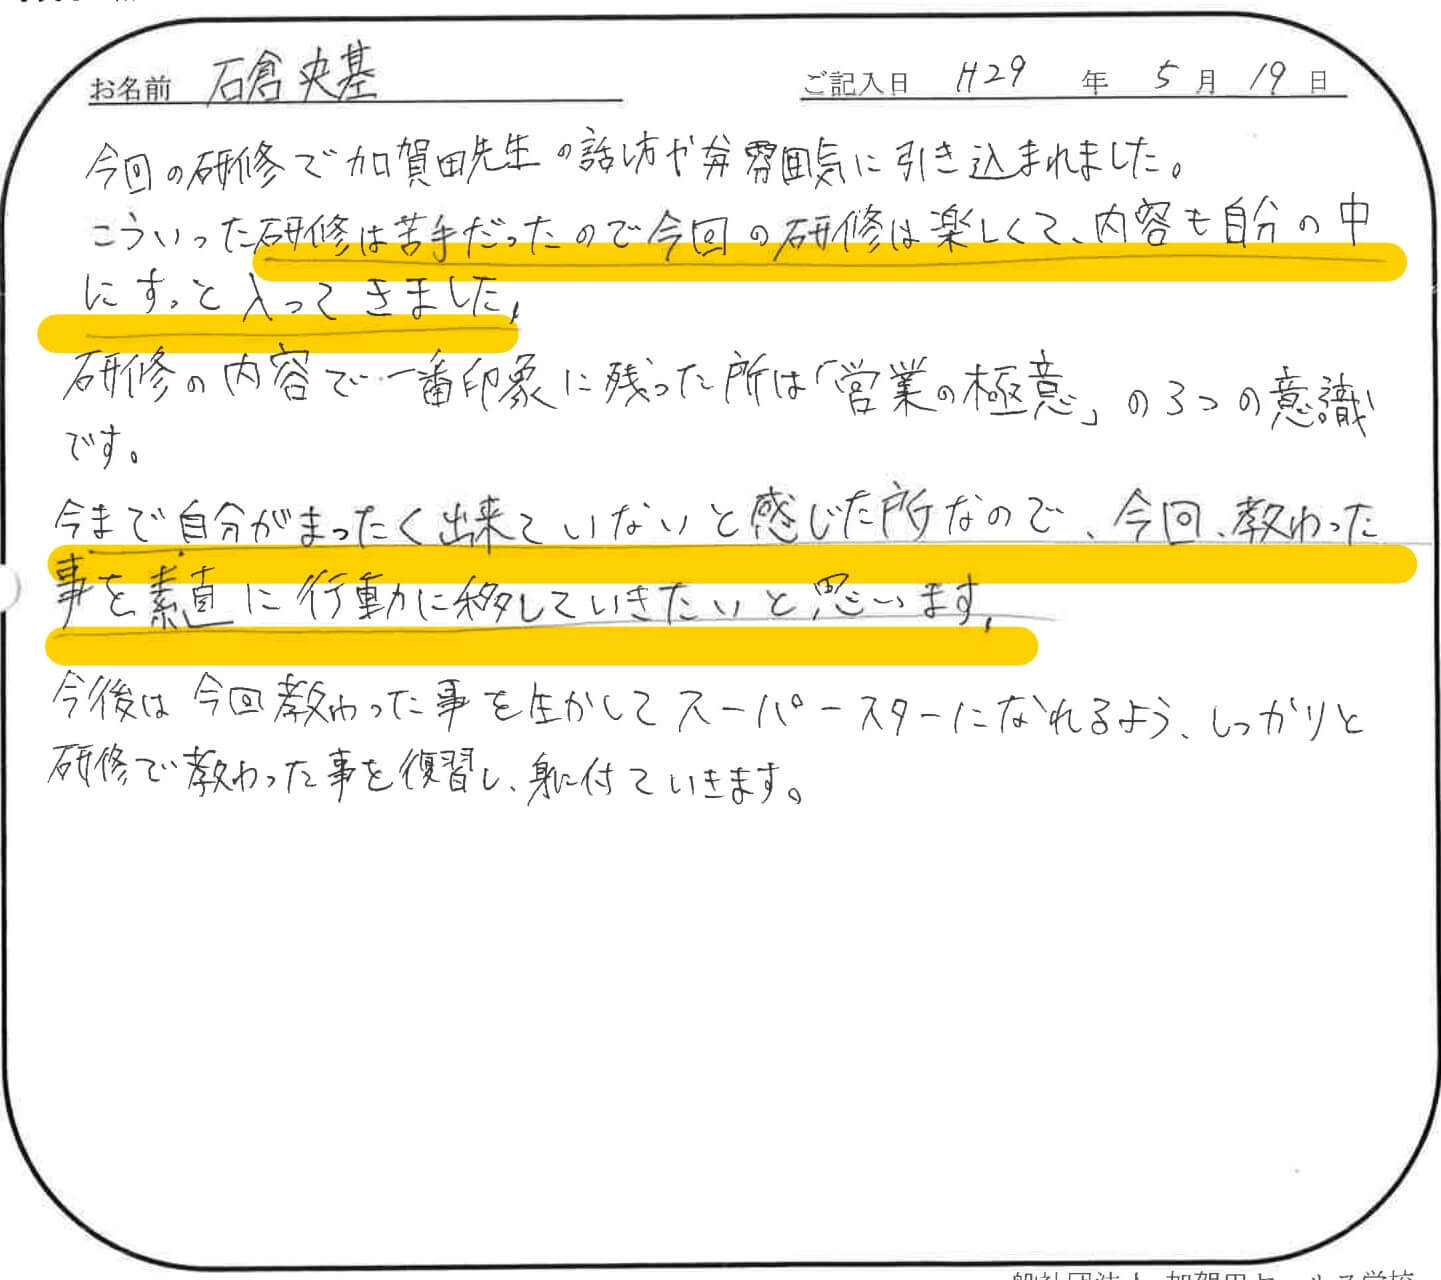 お名前 石倉央基 ご記入日 H29 年 5 月 19 日
今回の研修で加賀田先生の話し方や雰囲気に引き込まれました。
こういった研修は苦手だったので今回の研修は楽しくて、内容も自分の中
にすっと入ってきました。
研修の内容で一番印象に残った所は「営業の極意」の3つの意識
です。
今まで自分がまったく出来ていないと感じた所なので、今回、教わった
事を素直に行動に移していきたいと思います。
今後は今回教わった事を生かしてスーパースターになれるよう、しっかりと
研修で教わった事を復習し、身に付ていきます。